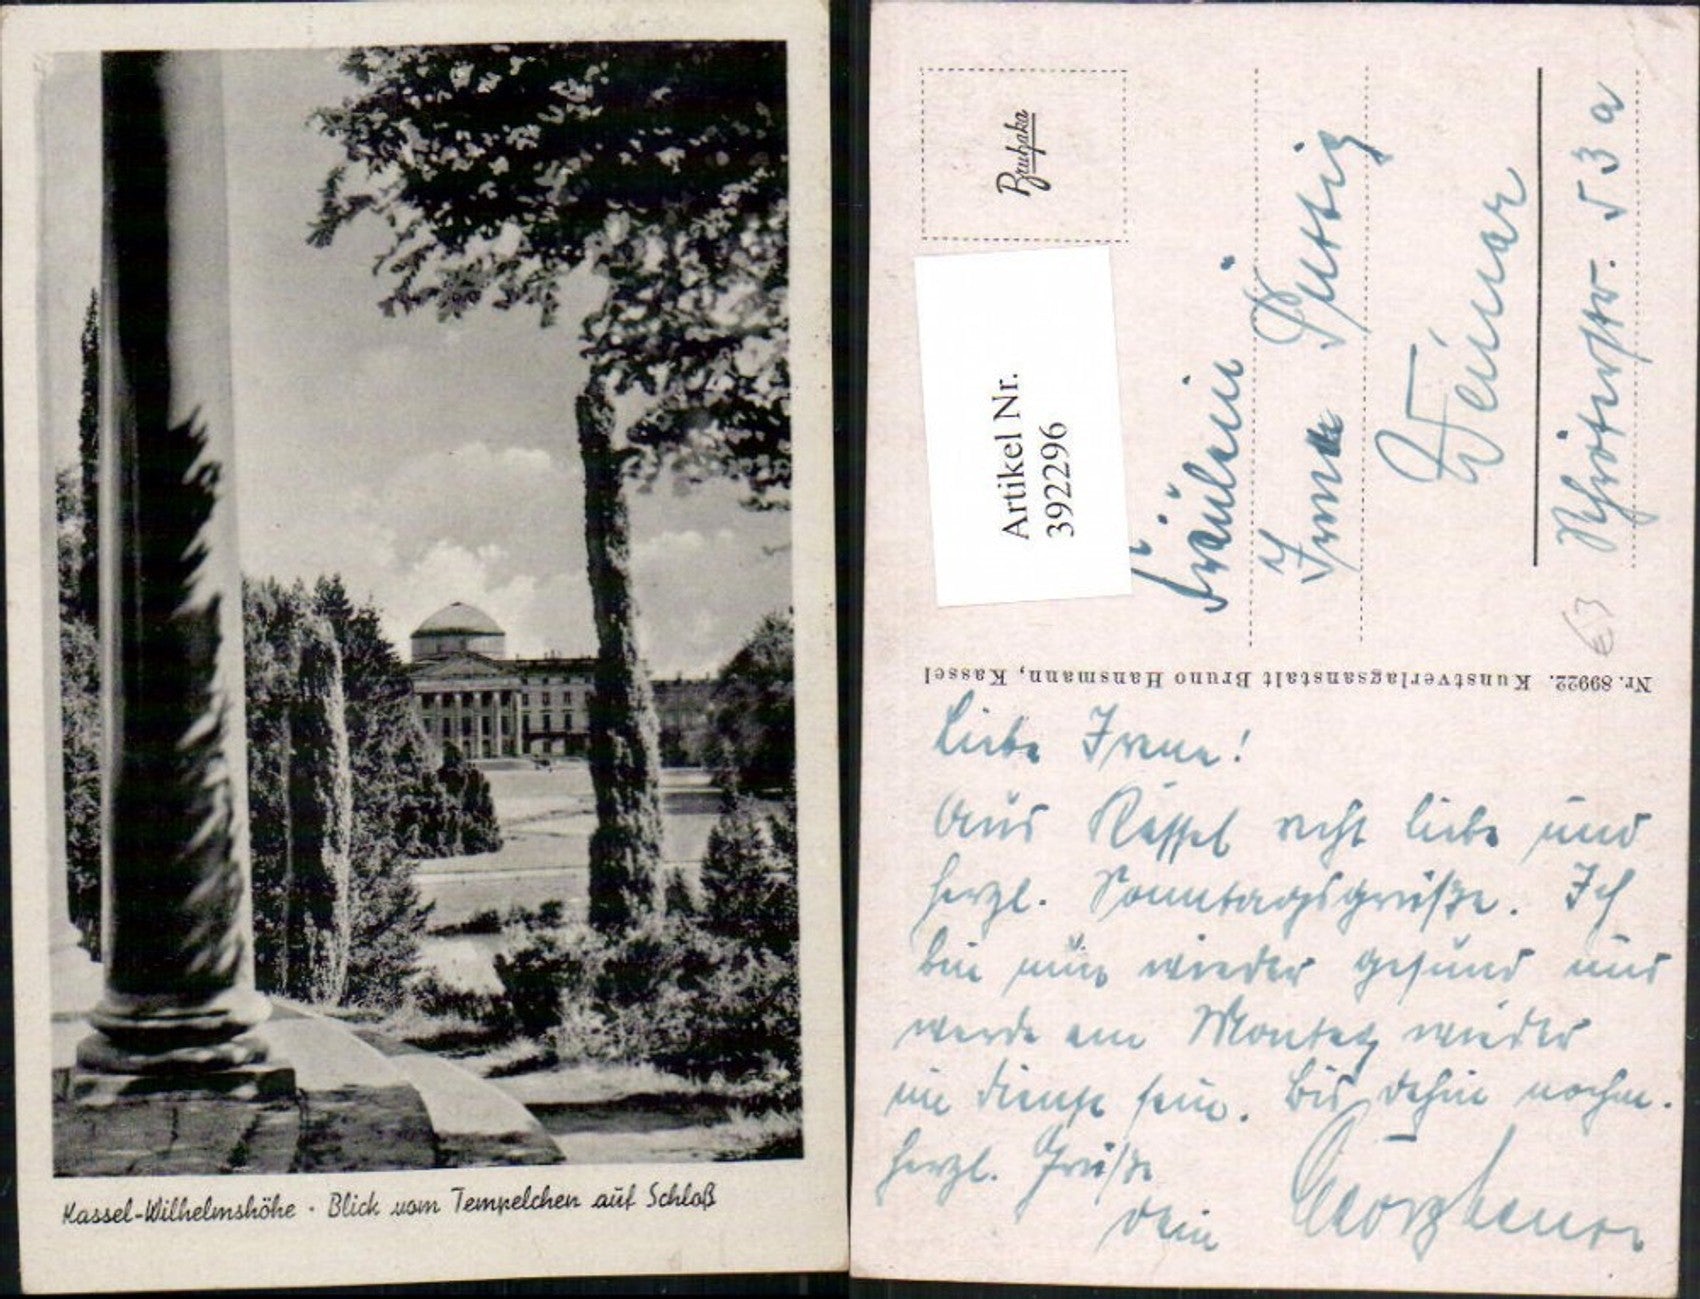 Kassel-Wilhelmshöhe · Blick vom Tempelchen auf Schloß
Artikel Nr.
392296
Fräulein
Weimar
53a
Nr. 89922. Kunstverlagsanstalt Bruno Hansmann, Kassel
Liebe Irene!
Aus Kassel recht liebe und
herzl. Sonntagsgrüße. Ich
bin nun wieder gesund und
werde am Montag wieder
im Dienst sein. Bis dahin nochm.
herzl. Grüße
Dein